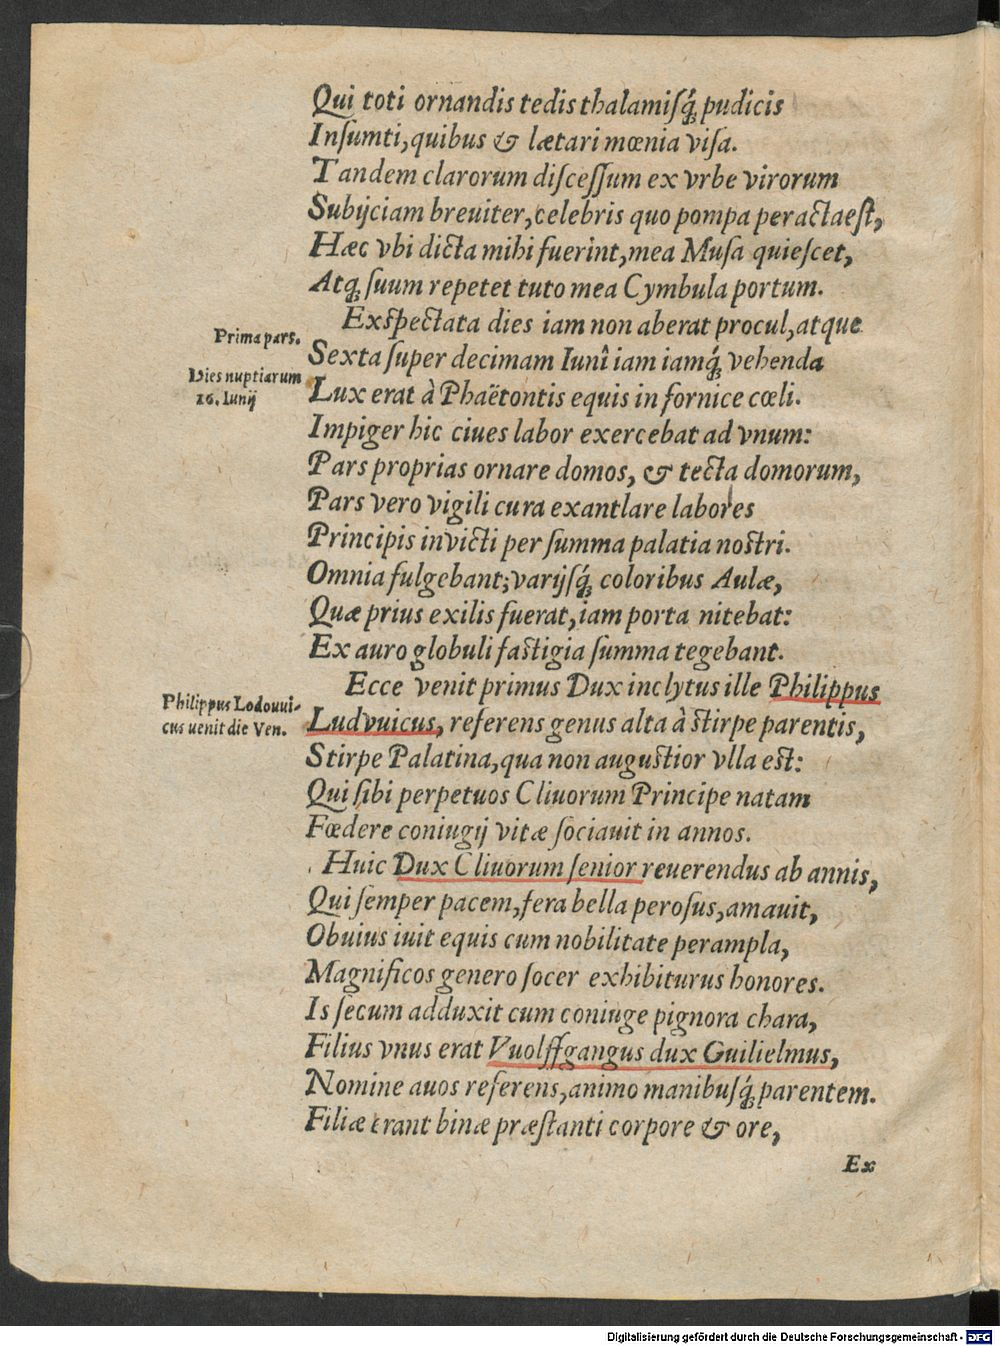 Qui toti ornandis tedis thalamiſq́; pudicis
Inſumti, quibus & lætari mœnia viſa.
Tandem clarorum diſceſſum ex vrbe virorum
Subijciam breuiter, celebris quo pompa peracta eſt,
Hæc vbi dicta mihi fuerint, mea Muſa quieſcet,
Atq; ſuum repetet tuto mea Cymbula portum.
Exſpectata dies iam non aberat procul, atque
Prima pars.
Sexta ſuper decimam Iunî iam iamq́; vehenda
Dies nuptiarum
16. Iunij
Lux erat à Phaëtontis equis in fornice cœli.
Impiger hic ciues labor exercebat ad vnum:
Pars proprias ornare domos, & tecta domorum,
Pars vero vigili cura exantlare labores
Principis invicti per ſumma palatia noſtri.
Omnia fulgebant; varijſq́; coloribus Aulæ,
Quæ prius exilis fuerat, iam porta nitebat:
Ex auro globuli faſtigia ſumma tegebant.
Ecce venit primus Dux inclytus ille Philippus
Philippus Lodouui-
cus uenit die Ven.
Ludvuicus, referens genus alta à ſtirpe parentis,
Stirpe Palatina, qua non auguſtior vlla eſt:
Qui ſibi perpetuos Cliuorum Principe natam
Fœdere coniugij vitæ ſociauit in annos.
Huic Dux Cliuorum ſenior reuerendus ab annis,
Qui ſemper pacem, fera bella peroſus, amauit,
Obuius iuit equis cum nobilitate perampla,
Magnificos genero ſocer exhibiturus honores.
Is ſecum adduxit cum coniuge pignora chara,
Filius vnus erat Vuolffgangus dux Guilielmus,
Nomine avos referens, animo manibuſq́; parentem.
Filiæ erant binæ præſtanti corpore & ore,
Ex
Digitalisierung gefördert durch die Deutsche Forschungsgemeinschaft - DFG